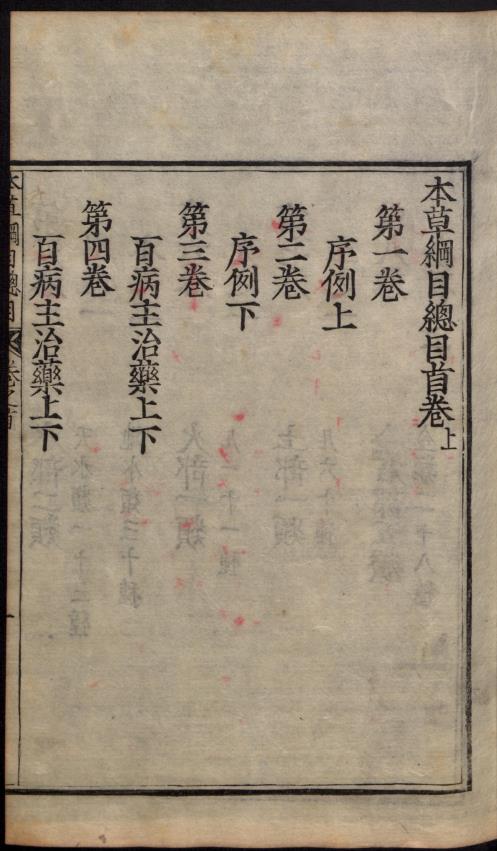 本草綱目總目首卷上
第一卷
序例上
第二卷
序例下
第三卷
百病主治藥上下
第四卷
百病主治藥上下
本草綱目總目 卷之首
一